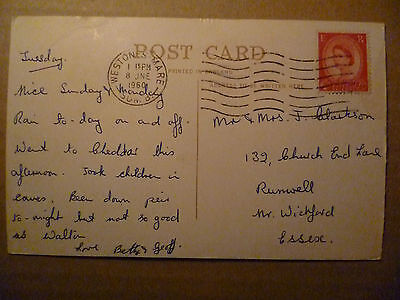 Tuesday.
Nice Sunday & Monday
Rain to-day on and off.
Went to Cheddar this
afternoon. Took children in
caves. Been down pier
to-night but not so good
as Walton.
Love Betty & Geoff.
POST CARD
PRINTED IN ENGLAND
ADDRESS TO BE WRITTEN HERE
WESTON-S-MARE
1 15 PM
8 JNE
1960
SOM.
Mr & Mrs. J. Clarkson
139, Church End Lane
Runwell
Nr. Wickford
Essex.